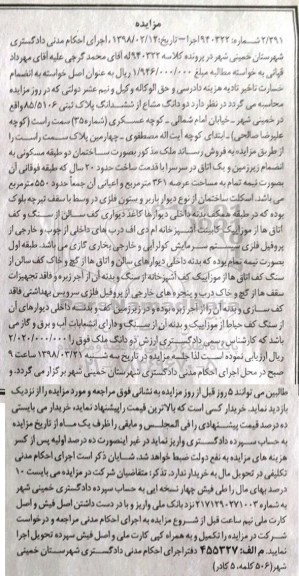 مزایده
۲/۳۹۱ شماره: ۹۴۰۳۲۲ اجرا – تاریخ: ۱۳۹۸/۰۲/۱۴، اجرای احکام مدنی دادگستری
شهرستان خمینی شهر در پرونده کلاسه ۹۴۰۳۲۲ له آقای محمد گرجی علیه آقای مهرداد
قپانی به خواسته مطالبه مبلغ ۱/۹۴۶/۰۰۰/۰۰۰ ریال به عنوان اصل خواسته به انضمام
خسارت تاخیر تادیه هزینه دادرسی و حق الوکاله وکیل و نیم عشر دولتی که در روز مزایده
محاسبه می گردد در نظر دارد دو دانگ مشاع از ششدانگ پلاک ثبتی ۸۵/۵۱۰۶ واقع
در خمینی شهر – خیابان امام شمالی – کوچه عسکری (شماره ۳۵) سمت راست (کوچه
علیرضا صالحی) – ابتدای کوچه آیت اله مصطفوی – چهارمین پلاک سمت راست را
از طریق مزایده به فروش رساند ملک مذکور بصورت ساختمان دو طبقه مسکونی به
انضمام زیرزمین و یک اتاق در سرسرا با قدمت ساخت حدود ۲۰ سال که طبقه فوقانی آن
بصورت نیمه تمام به مساحت عرصه ۳۶۱ مترمربع و اعیانی آن جمعاً حدود ۵۵۰ مترمربع
می باشد. اسکلت ساختمان از نوع دیوار باربر و ستون فلزی در وسط با سقف تیرچه بلوک
بوده که در طبقه همکف بدنه داخلی دیوارها کاغذ دیواری کف سالن از سنگ و کف
اتاق ها از موزاییک کابینت آشپزخانه ام دی اف درب های داخلی از چوب و خارجی از
پروفیل فلزی سیستم سرمایش کولر آبی و گرمایش بخاری گازی می باشد. طبقه اول
بصورت نیمه تمام بوده که بدنه داخلی دیوارهای سالن و اتاق ها از گچ و خاک کف سالن از
سنگ کف اتاق ها از موزاییک کف آشپزخانه از سنگ و بدنه آن از آجر زبره و فاقد تجهیزات
سقف ها از گچ و خاک درب و پنجره های خارجی از پروفیل فلزی سرویس بهداشتی فاقد
کف سازی و بدنه آن از آجر زبره بوده و در زیرزمین کف و بدنه داخلی دیوارهای آن
از سنگ کف حیاط از موزاییک و بدنه آن از سنگ و دارای انشعابات آب و برق و گاز می
باشد که کارشناس رسمی دادگستری ارزش دو دانگ ملک فوق را ۲/۰۲۰/۰۰۰/۰۰۰
ریال ارزیابی نموده است لذا جلسه مزایده در تاریخ سه شنبه ۱۳۹۸/۰۳/۲۱ ساعت ۹
صبح در محل اجرای احکام مدنی دادگستری شهرستان خمینی شهر برگزار می گردد. و
طالبین می توانند ۵ روز قبل از روز مزایده به نشانی فوق مراجعه و مورد مزایده را از نزدیک
بازدید نماید. خریدار کسی است که بالاترین قیمت را پیشنهاد نماید، خریدار می بایستی
ده درصد قیمت پیشنهادی را فی المجلس و مابقی را ظرف یک ماه از تاریخ مزایده
به حساب سپرده دادگستری واریز نماید در غیر اینصورت ده درصد اولیه پس از کسر
هزینه های مزایده به نفع دولت ضبط خواهد شد. شایان ذکر است اجرای احکام مدنی
تکلیفی در تحویل مال به خریدار ندارد، تذکر: متقاضیان شرکت در مزایده می بایست ۱۰
درصد بهای مال را طی فیش چهار نسخه ایی به حساب سپرده دادگستری خمینی شهر
به شماره ۲۱۷۱۲۹۰۲۷۱۰۰۳ نزد بانک ملی واریز و با در دست داشتن اصل فیش و اصل
کارت ملی نیم ساعت قبل از شروع مزایده به اجرای احکام مدنی مراجعه و درخواست
شرکت در مزایده را تکمیل و به همراه کپی کارت ملی و اصل فیش سپرده تحویل اجرا
نمایید. م الف: ۴۵۵۳۲۷ دفتر اجرای احکام مدنی دادگستری شهرستان خمینی
شهر (۵۰۶ کلمه، ۵ کادر)